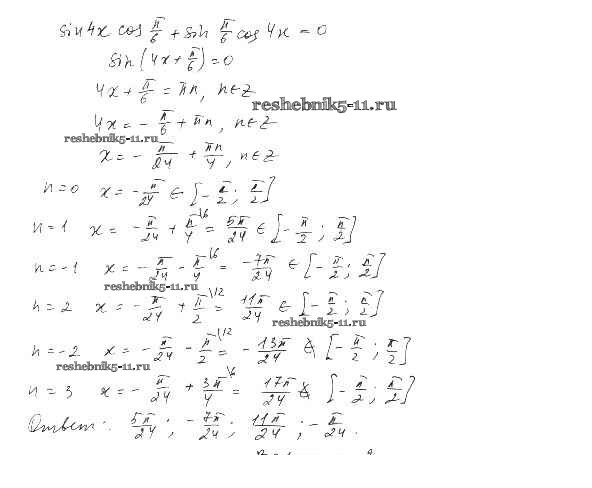 sin 4x cos π/6 + sin π/6 cos 4x = 0
sin(4x + π/6) = 0
4x + π/6 = πn, n∈Z
reshebnik5-11.ru
4x = - π/6 + πn, n∈Z
reshebnik5-11.ru
x = - π/24 + πn/4, n∈Z
n=0 x = - π/24 ∈ [- π/2 ; π/2]
n=1 x = - π/24 + π/4 \6 = 5π/24 ∈ [- π/2 ; π/2]
n=-1 x = - π/24 - π/4 \6 = -7π/24 ∈ [- π/2 ; π/2]
reshebnik5-11.ru
n=2 x = - π/24 + π/2 \12 = 11π/24 ∈ [- π/2 ; π/2]
reshebnik5-11.ru
n=-2 x = - π/24 - π/2 \12 = - 13π/24 ∉ [- π/2 ; π/2]
reshebnik5-11.ru
n=3 x = - π/24 + 3π/4 \6 = 17π/24 ∉ [- π/2 ; π/2]
Ответ: 5π/24 ; - 7π/24 ; 11π/24 ; - π/24.